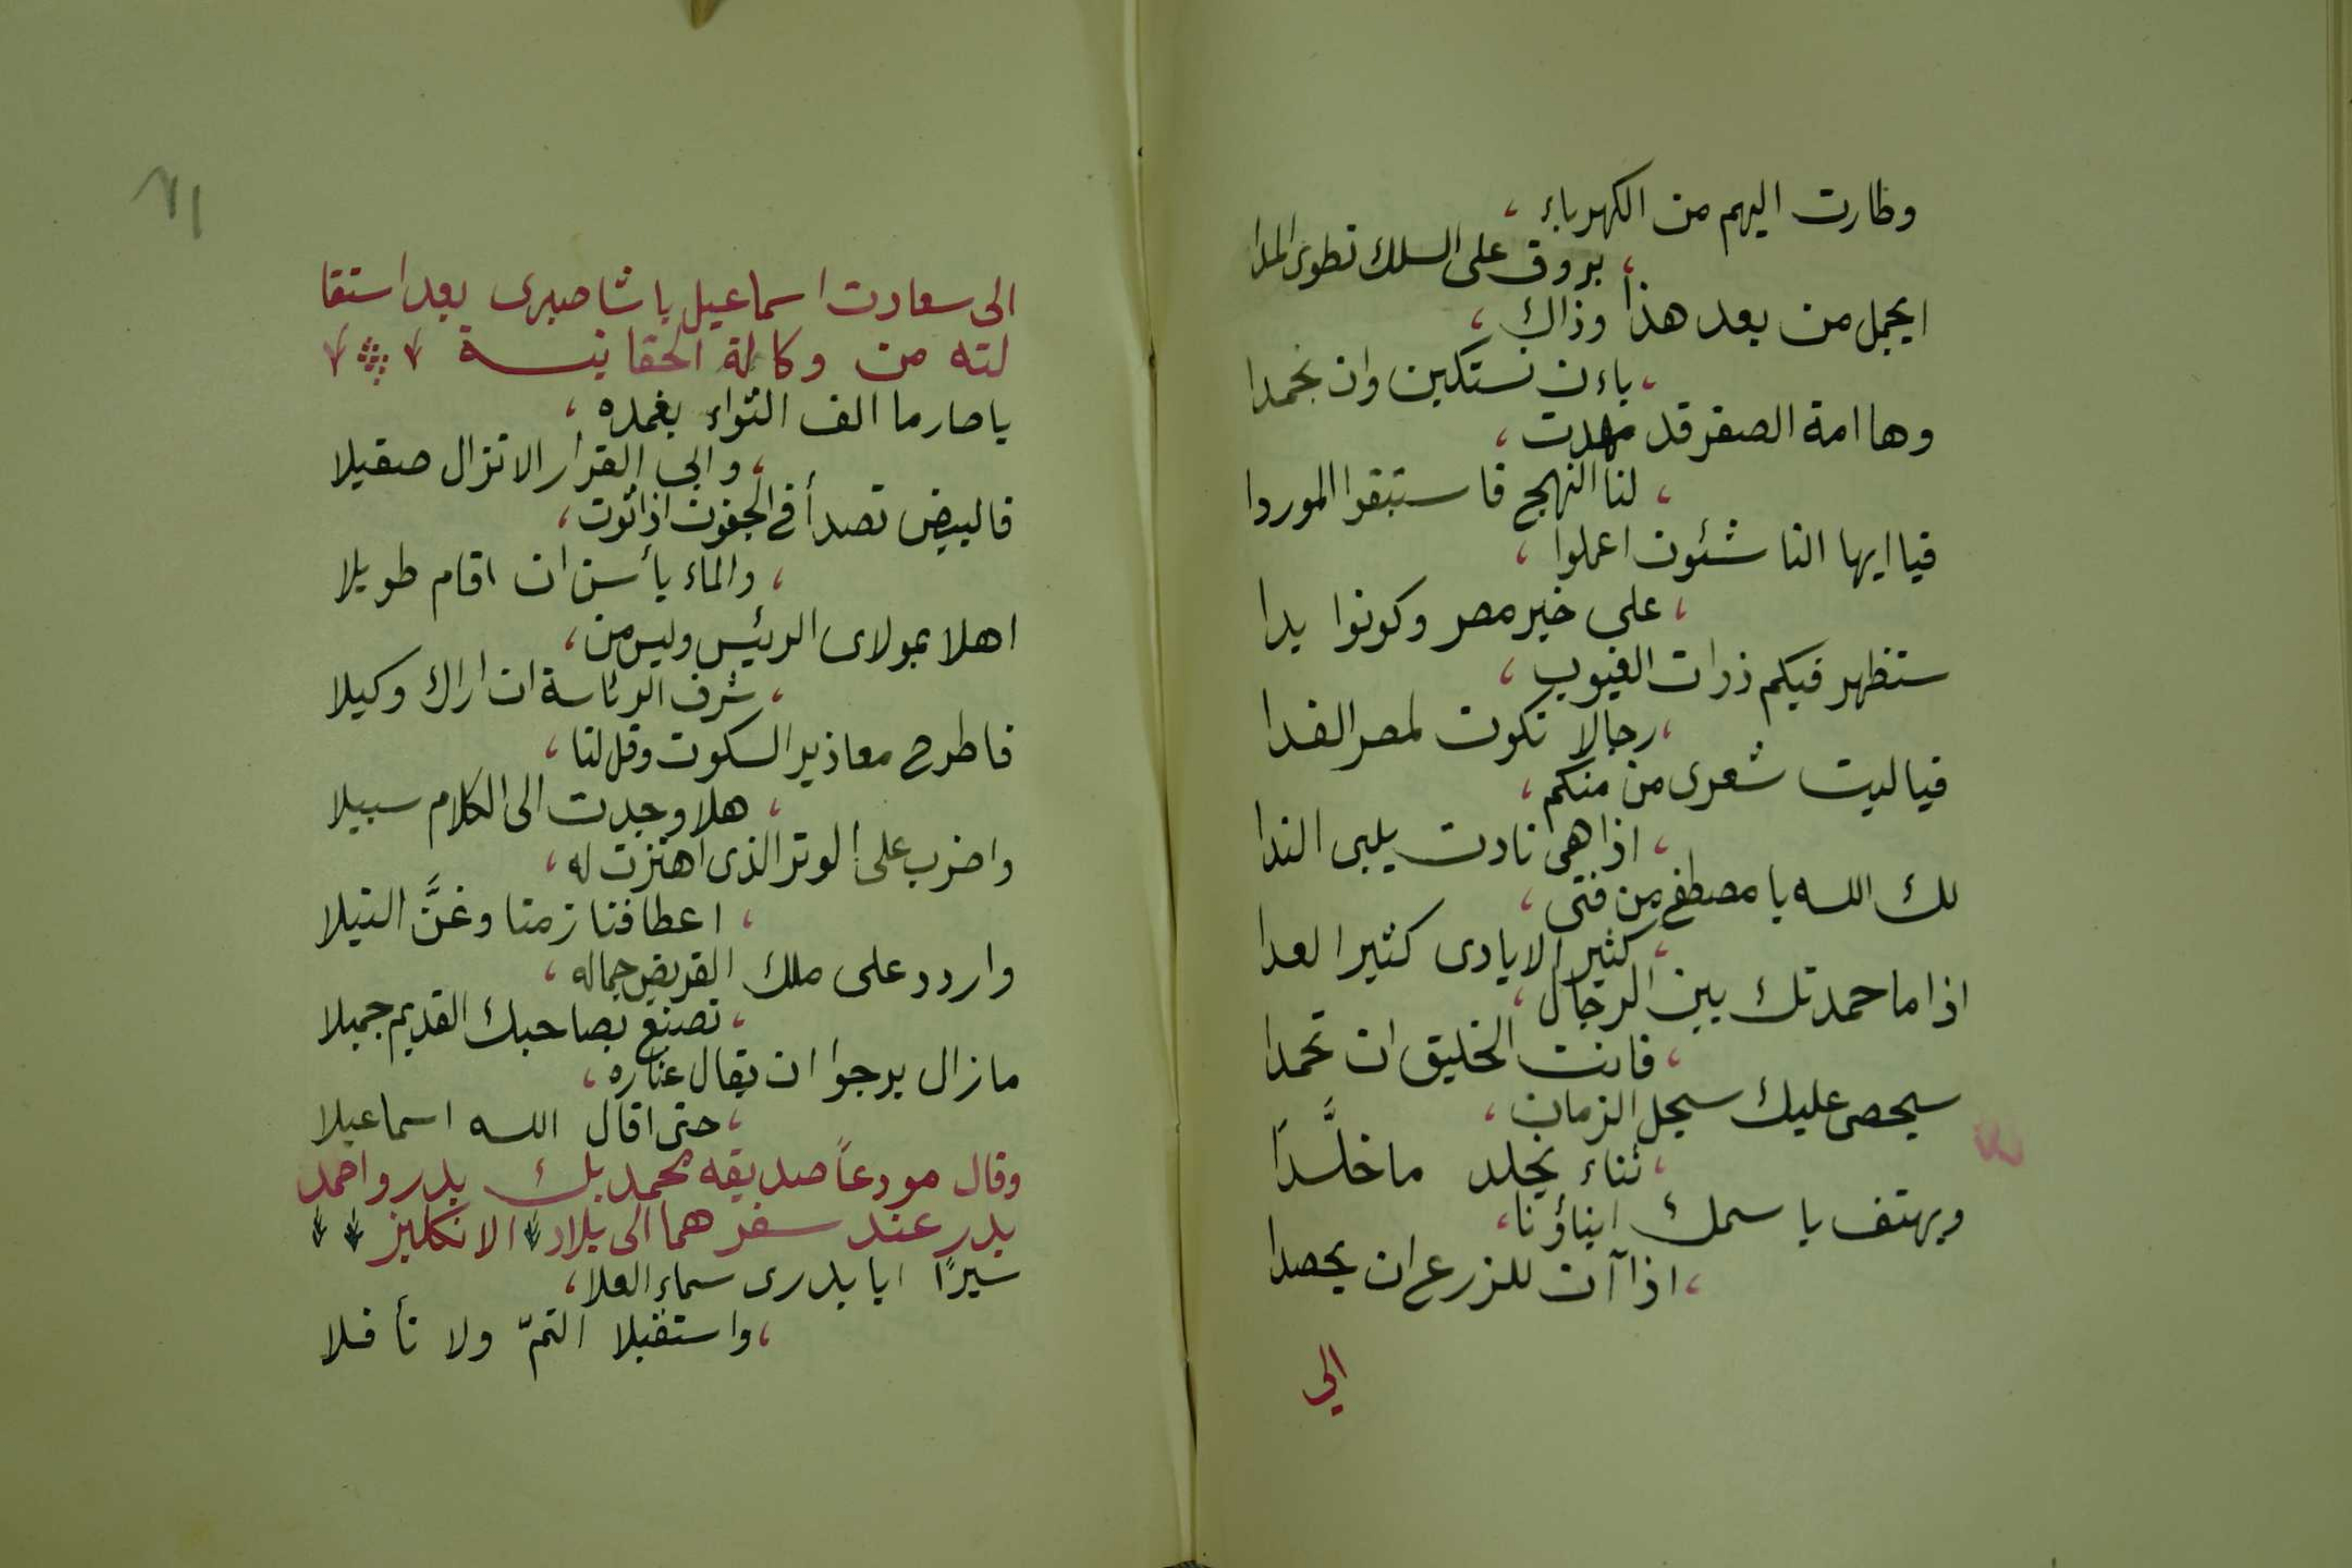 وطارت اليهم من الكهرباء ،
، بروق على السلك تطوى المدا
ايجمل من بعد هذا وذاك ،
، باءن نستكين وان نجمدا
وها امة الصفر قد مهدت ،
، لنا النهج فاستبقوا الموردا
فيا ايها الناشئون اعملوا ،
، على خير مصر وكونوا يدا
ستظهر فيكم ذوات الغيوب ،
، رجالا تكون لمصر الفدا
فياليت شعرى من منكم ،
، اذا هى نادت يلبى الندا
لك الله يا مصطفى من فتى ،
، كثير الايادى كثير العدا
اذا ما حمدتك بين الرجال ،
، فانت الخليق ان تحمدا
سيحصى عليك سجل الزمان ،
، ثناء يخلد ما خلَّدَا
ويهتف باسمك ابناؤنا ،
، اذا آن للزرع ان يحصدا
الى
٦١
الى سعادت اسماعيل باشا صبرى بعد استقا
لته من وكالة الحقانية
يا صارما الف الثواء بغمده ،
، وابى القرار الا تزال صقيلا
فالبيض تصدأ فى الجفون اذا ثوت ،
، والماء يأسن ان اقام طويلا
اهلا بمولاى الرئيس وليس من ،
، شرف الرئاسة ان اراك وكيلا
فاطرح معاذير السكوت وقل لنا ،
، هلا وجدت الى الكلام سبيلا
واضرب على الوتر الذى اهتزت له ،
، اعطافنا زمنا وغنَّ النيلا
واردد على ملك القريض جماله ،
، تصنع بصاحبك القديم جميلا
ما زال يرجوا ان يقال عثاره ،
، حتى اقال الله اسماعيلا
وقال مودعاً صديقه محمد بك بدر واحمد
بدر عند سفرهما الى بلاد الانكليز
سيرًا ايا بدرى سماء العلا ،
، واستقبلا التمّ ولا تأفلا